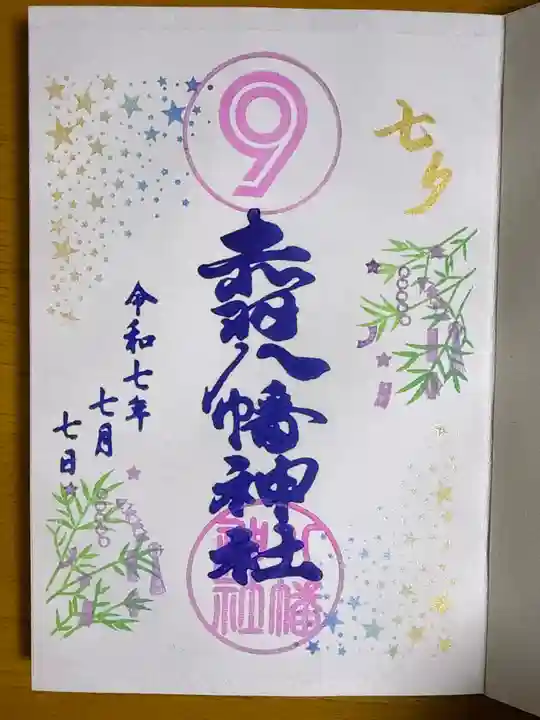 七夕
⑨
赤羽八幡神社
八幡神社
令和七年
七月
七日